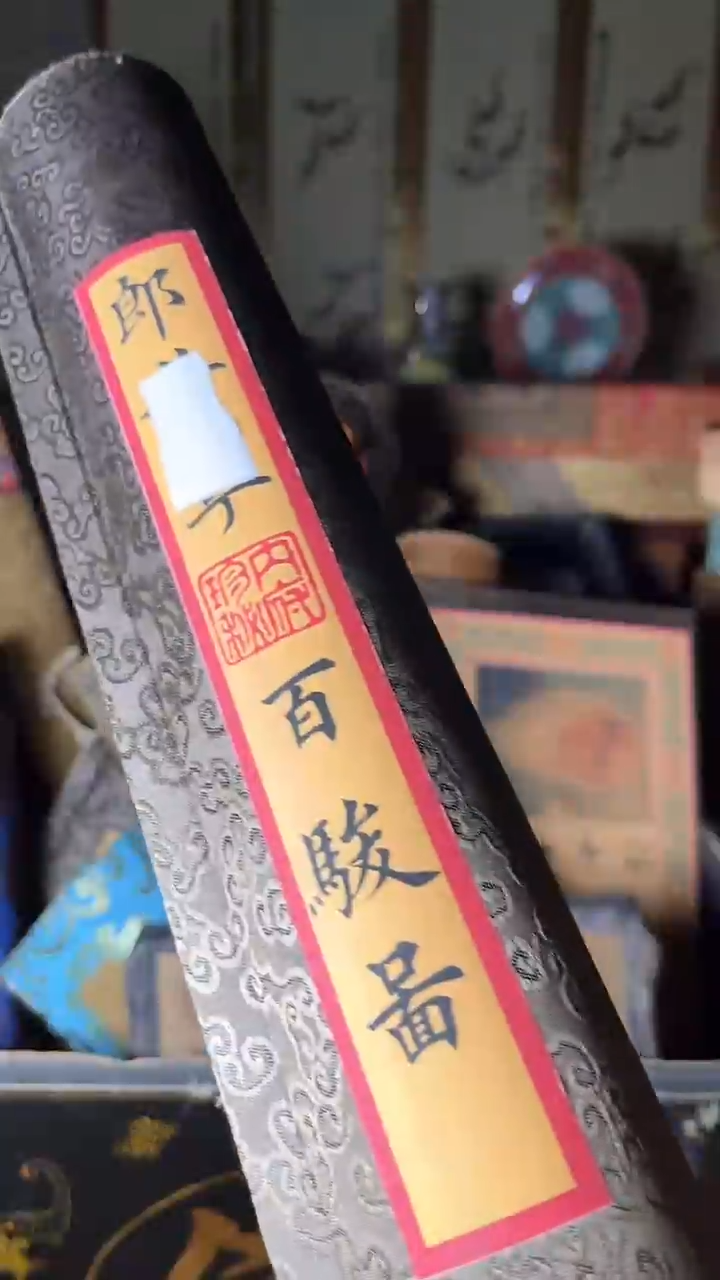 郎
内府
珍秘
百駿啚